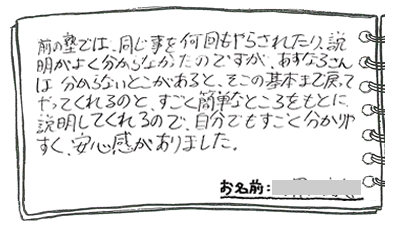 前の塾では、同じ事を何回もやらされたり、説
明がよく分からなかたのですが、あすなろさん
は分からないとこがあると、そこの基本まで戻って
やってくれるのと、すごく簡単なところをもとに、
説明してくれるので、自分でもすごく分かりや
すく、安心感がありました。
お名前：